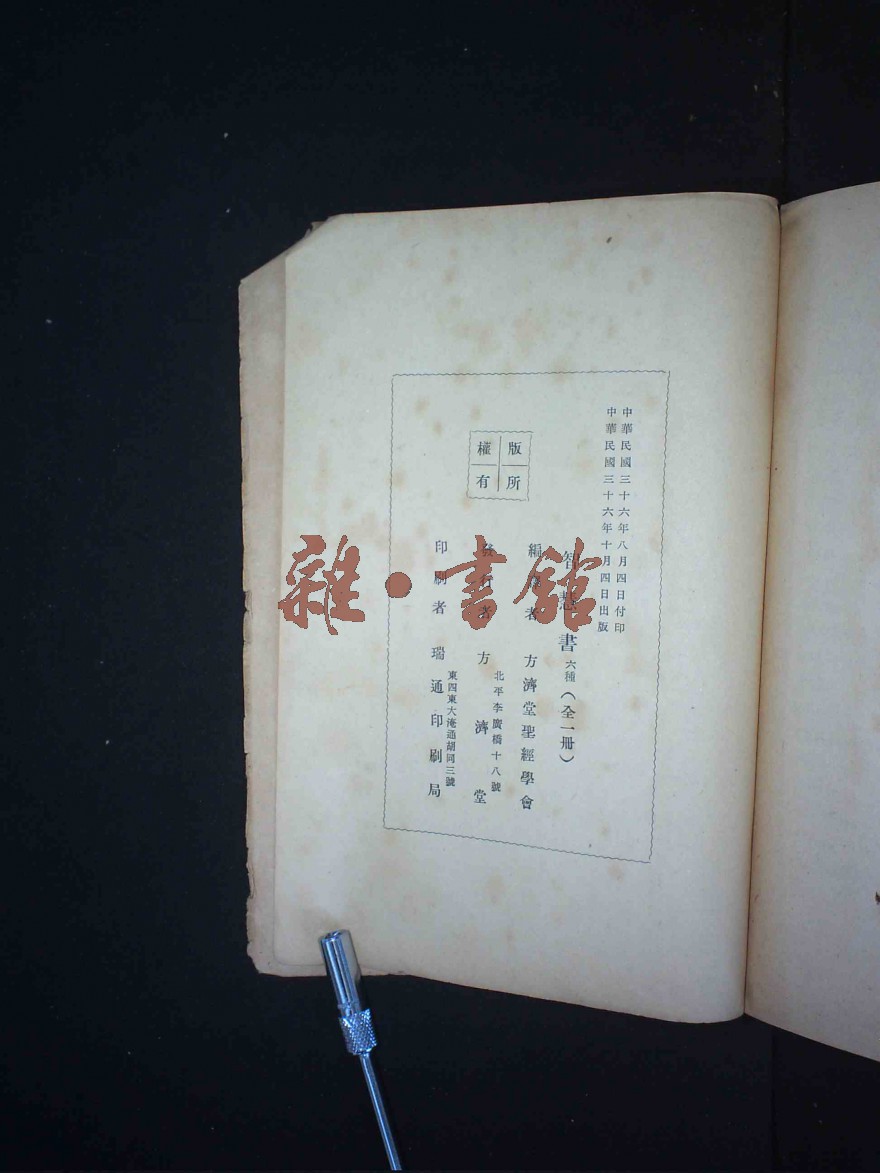 中華民國三十六年八月四日付印
中華民國三十六年十月四日出版
智慧書六種(全一冊)
版權所有
編譯者 方濟堂聖經學會
北平李廣橋十八號
發行者 方濟堂
東四東大淹通胡同三號
印刷者 瑞通印刷局
雜·書館